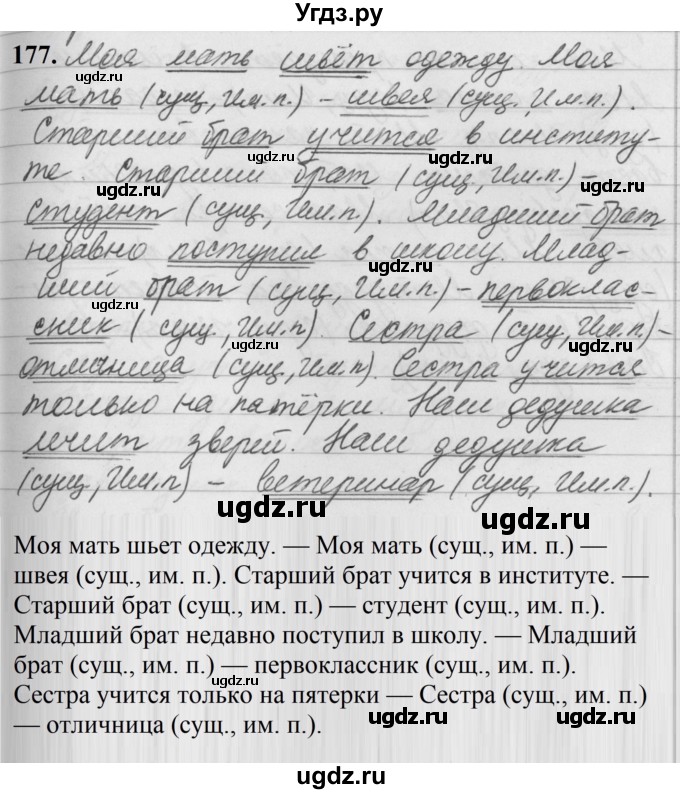 Угдз.ру
177. Моя мать шьёт одежду. Моя
мать (сущ., Им.п.) – швея (сущ. Им.п.).
Старший брат учится в институ-
те. Старший брат (сущ, Им.п.) –
студент (сущ, Им.п.). Младший брат
недавно поступил в школу. Млад-
ший брат (сущ, Им.п.) – первоклас-
сник (сущ., Им.п). Сестра (сущ, Им.п) –
отличница (сущ, Им.п). Сестра учится
только на пятёрки. Наш дедушка
лечит зверей. Наш дедушка
(сущ, Им.п) – ветеринар (сущ, Им.п.).
Моя мать шьет одежду. — Моя мать (сущ., им. п.) —
швея (сущ., им. п.). Старший брат учится в институте. —
Старший брат (сущ., им. п.) — студент (сущ., им. п.).
Младший брат недавно поступил в школу. — Младший
брат (сущ., им. п.) — первоклассник (сущ., им. п.).
Сестра учится только на пятерки — Сестра (сущ., им. п.)
— отличница (сущ., им. п.).
ugdz.ru